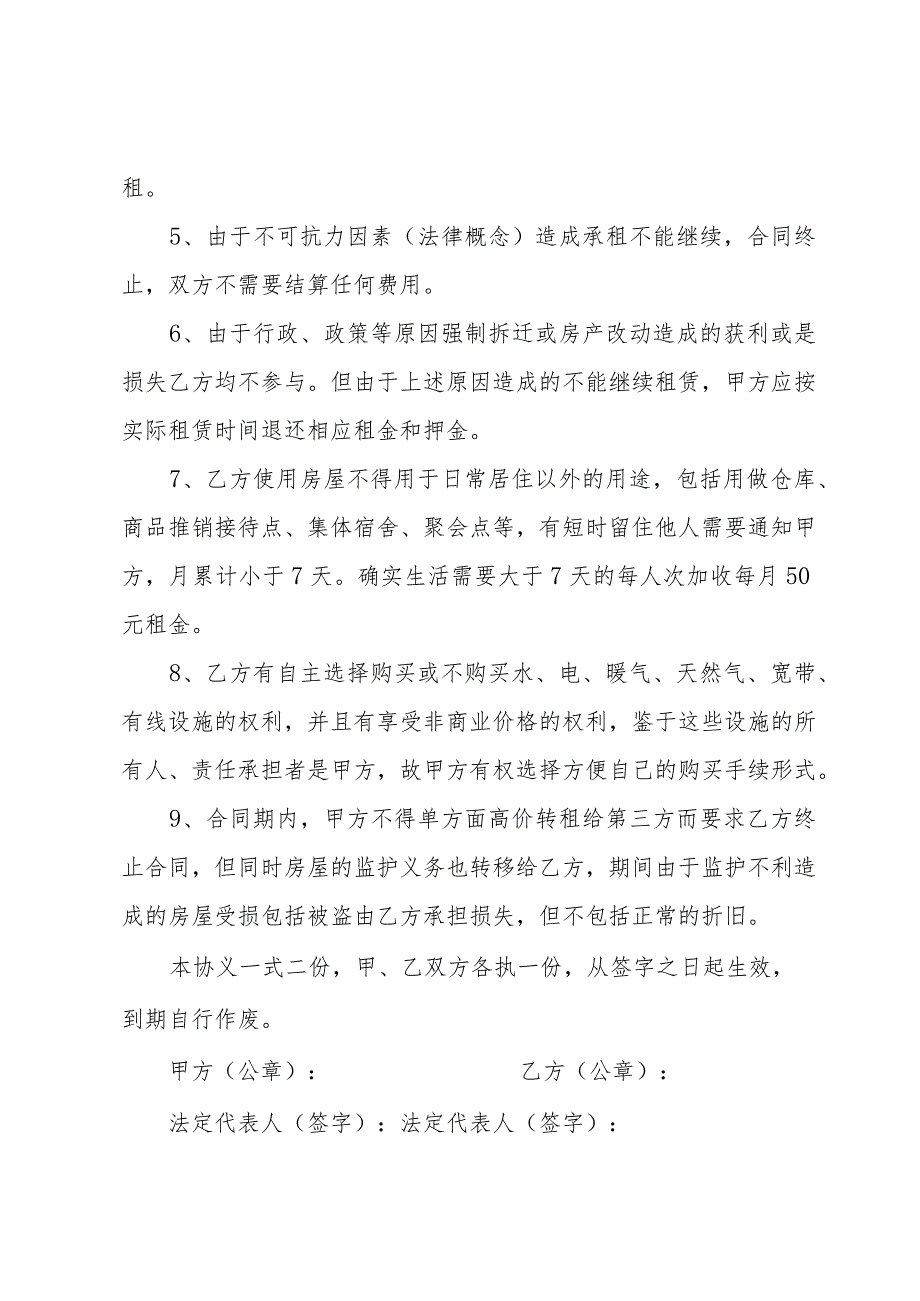 租。
5、由于不可抗力因素（法律概念）造成承租不能继续，合同终
止，双方不需要结算任何费用。
6、由于行政、政策等原因强制拆迁或房产改动造成的获利或是
损失乙方均不参与。但由于上述原因造成的不能继续租赁，甲方应按
实际租赁时间退还相应租金和押金。
7、乙方使用房屋不得用于日常居住以外的用途，包括用做仓库、
商品推销接待点、集体宿舍、聚会点等，有短时留住他人需要通知甲
方，月累计小于7天。确实生活需要大于7天的每人次加收每月50
元租金。
8、乙方有自主选择购买或不购买水、电、暖气、天然气、宽带、
有线设施的权利，并且有享受非商业价格的权利，鉴于这些设施的所
有人、责任承担者是甲方，故甲方有权选择方便自己的购买手续形式。
9、合同期内，甲方不得单方面高价转租给第三方而要求乙方终
止合同，但同时房屋的监护义务也转移给乙方，期间由于监护不利造
成的房屋受损包括被盗由乙方承担损失，但不包括正常的折旧。
本协义一式二份，甲、乙双方各执一份，从签字之日起生效，
到期自行作废。
甲方（公章）： 乙方（公章）：
法定代表人（签字）：法定代表人（签字）：